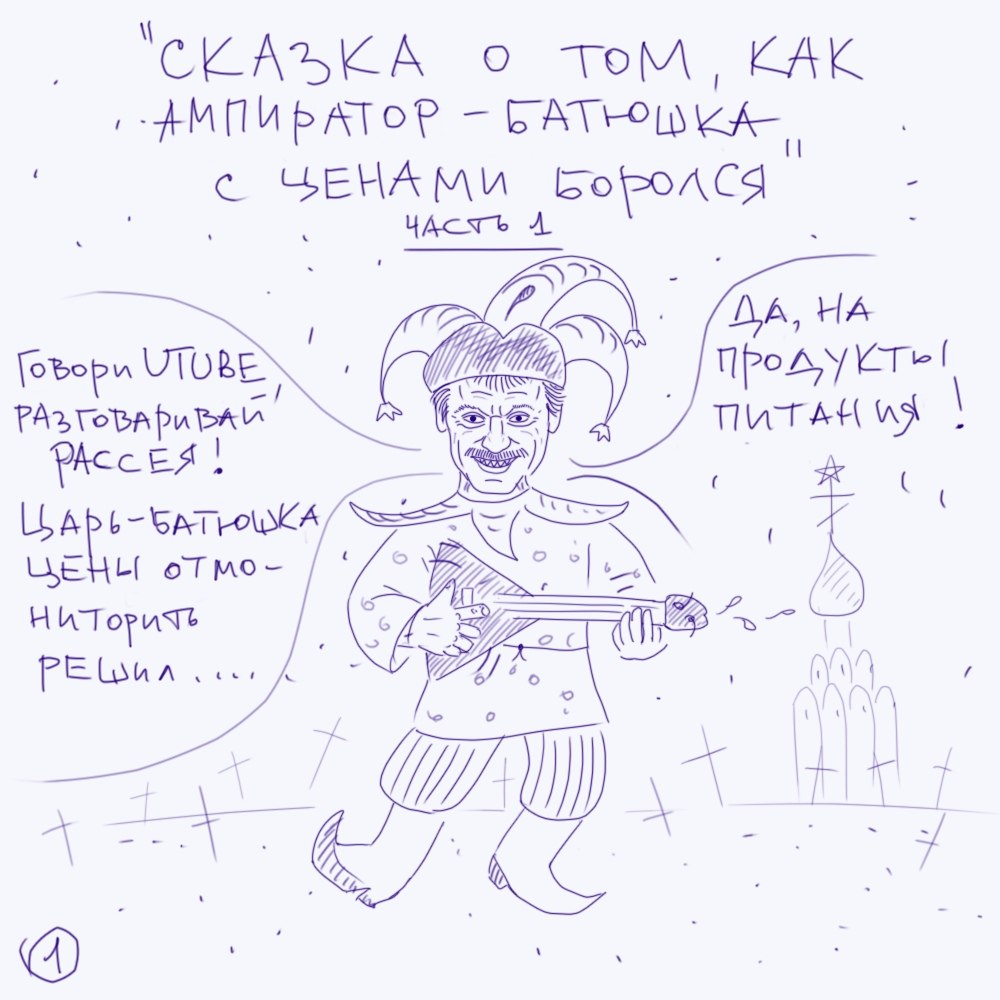 "СКАЗКА О ТОМ, КАК
АМПИРАТОР - БАТЮШКА
С ЦЕНАМИ БОРОЛСЯ"
ЧАСТЬ 1
ГОВОРИ UTUBE,
РАЗГОВАРИВАЙ
РАССЕЯ!
ЦАРЬ-БАТЮШКА
ЦЕНЫ ОТМО-
НИТОРИТЬ
РЕШИЛ ....
ДА, НА
ПРОДУКТЫ
ПИТАНИЯ!
1